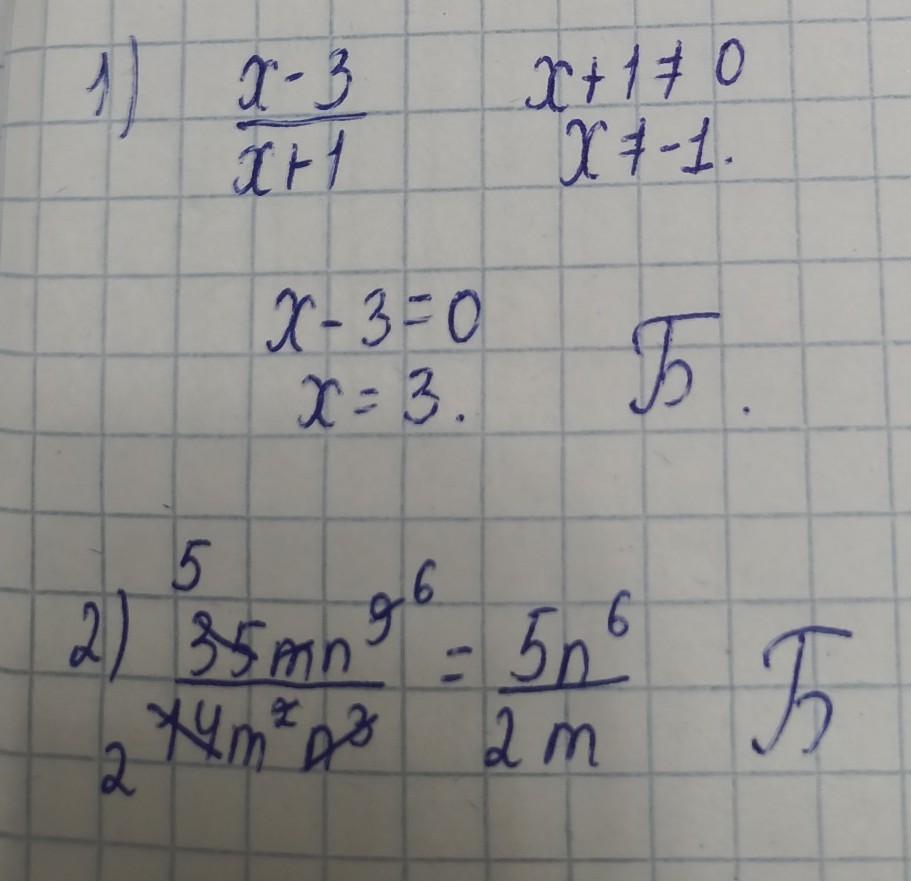 1) x-3 / x+1 x+1≠0
x≠-1.
x-3=0
x=3. Б.
2) 35mn⁹ / 14m²n³ = 5n⁶ / 2m Б
5 6
2